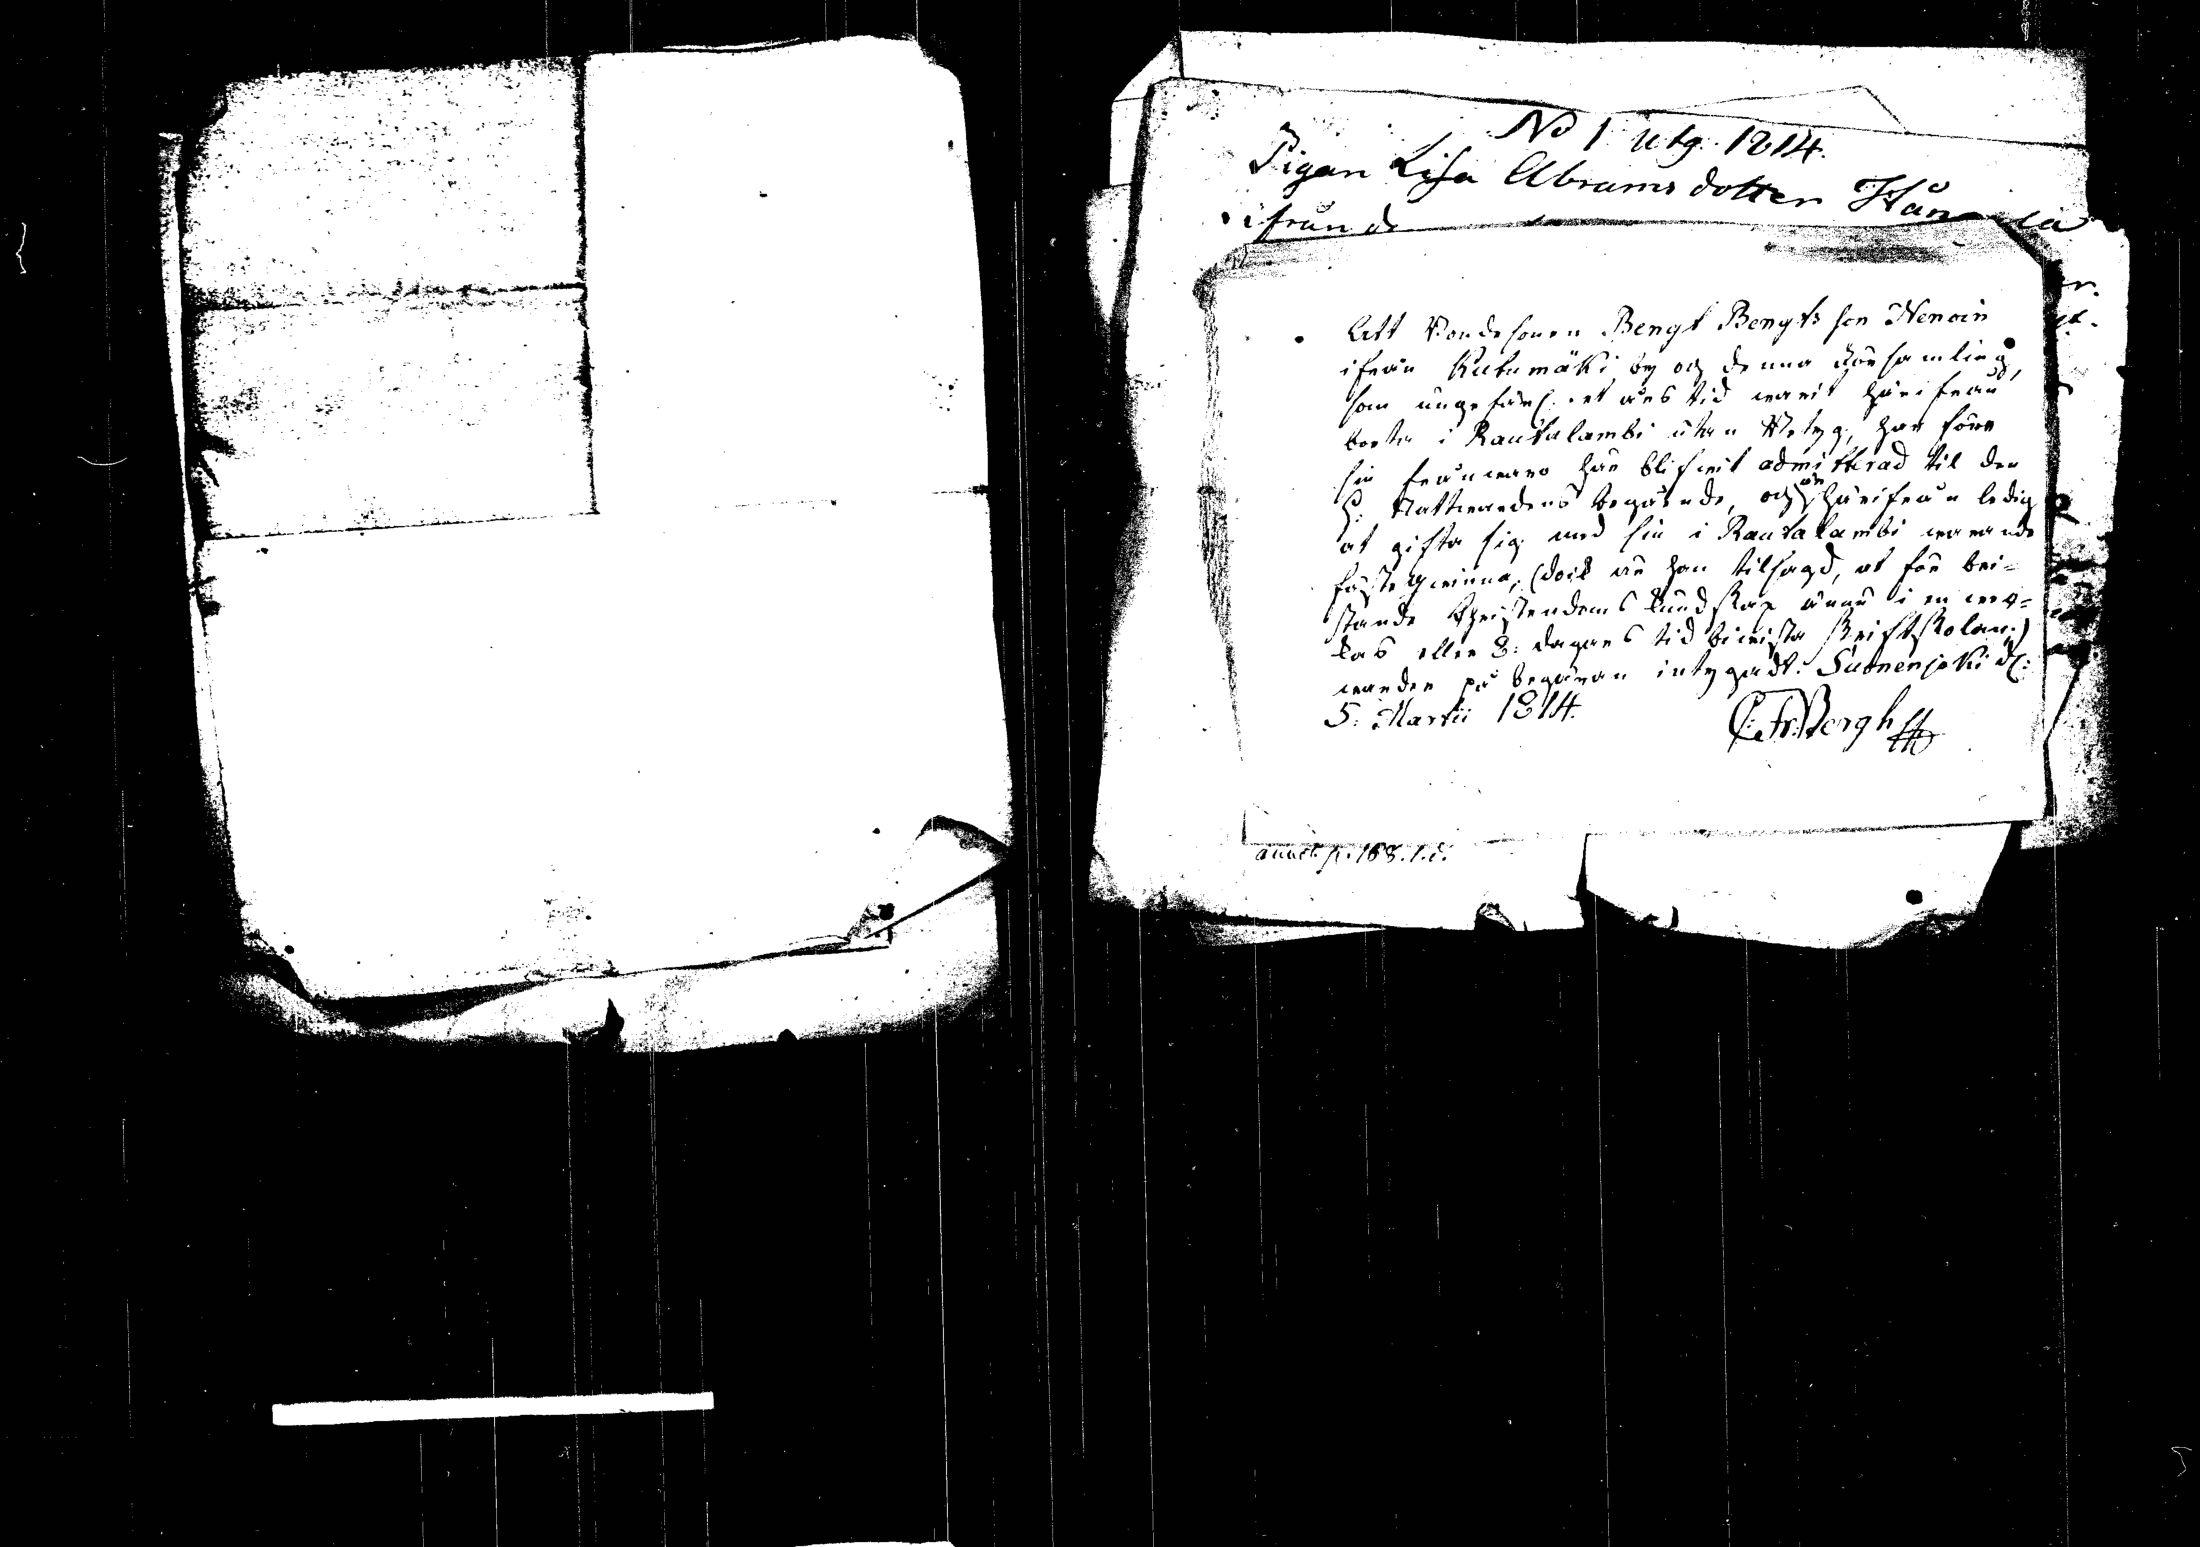 No 1 utg. 1814.
Pigan Lisa Abrams dotter
ifrån
Att Bondesonen Bengt Bengts son Nenoin
ifrån Kutumäki by och denna Församling,
som ungefär et års tid warit härifrån
borta i Rautalambi utan Betyg, har före
sin frånwaro här blifwit admitterad til den
H. Nattwardens begående, och är härifrån ledig
at gifta sig med sin i Rautalambi warande
fästeqwinna; (dock är han tilsagd, at för bri-
stande Christendoms kundskap ännu i en wec-
kas eller 8: dagars tid biwista Skriftskolan;)
warder på begäran intygadt. Suonenjoki d:
5: Martii 1814.
C: Fr: Bergh
annot. p. 168.